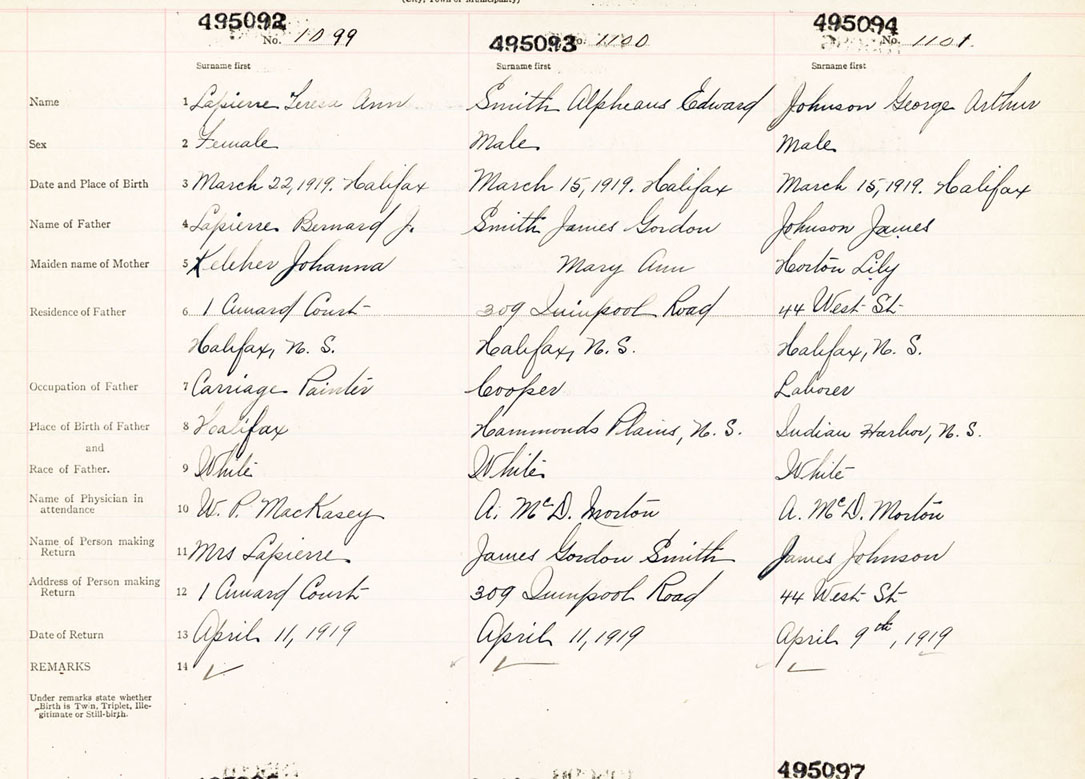 (City, Town or Municipality)
495092 No. 1099 495093 No. 1100 495094 No. 1101.
Surname first Surname first Surname first
Name 1 Lapierre Teresa Ann Smith Alpheaus Edward Johnson George Arthur
Sex 2 Female Male Male
Date and Place of Birth 3 March 22, 1919. Halifax March 15, 1919. Halifax March 15, 1919. Halifax
Name of Father 4 Lapierre Bernard J. Smith James Gordon Johnson James
Maiden name of Mother 5 Kelcher Johanna Mary Ann Horton Lily
Residence of Father 6 1 Cunard Court 309 Quinpool Road 44 West St
Halifax, N. S. Halifax, N. S. Halifax, N. S.
Occupation of Father 7 Carriage Painter Cooper Laborer
Place of Birth of Father 8 Halifax Hammonds Plains, N. S. Indian Harbor, N. S.
and
Race of Father. 9 White White White
Name of Physician in
attendance 10 W. P. MacKasey A. McD. Morton A. McD. Morton
Name of Person making
Return 11 Mrs Lapierre James Gordon Smith James Johnson
Address of Person making
Return 12 1 Cunard Court 309 Quinpool Road 44 West St
Date of Return 13 April 11, 1919 April 11, 1919 April 9th, 1919
REMARKS 14
Under remarks state whether
Birth is Twin, Triplet, Ille-
gitimate or Still-birth.
495097